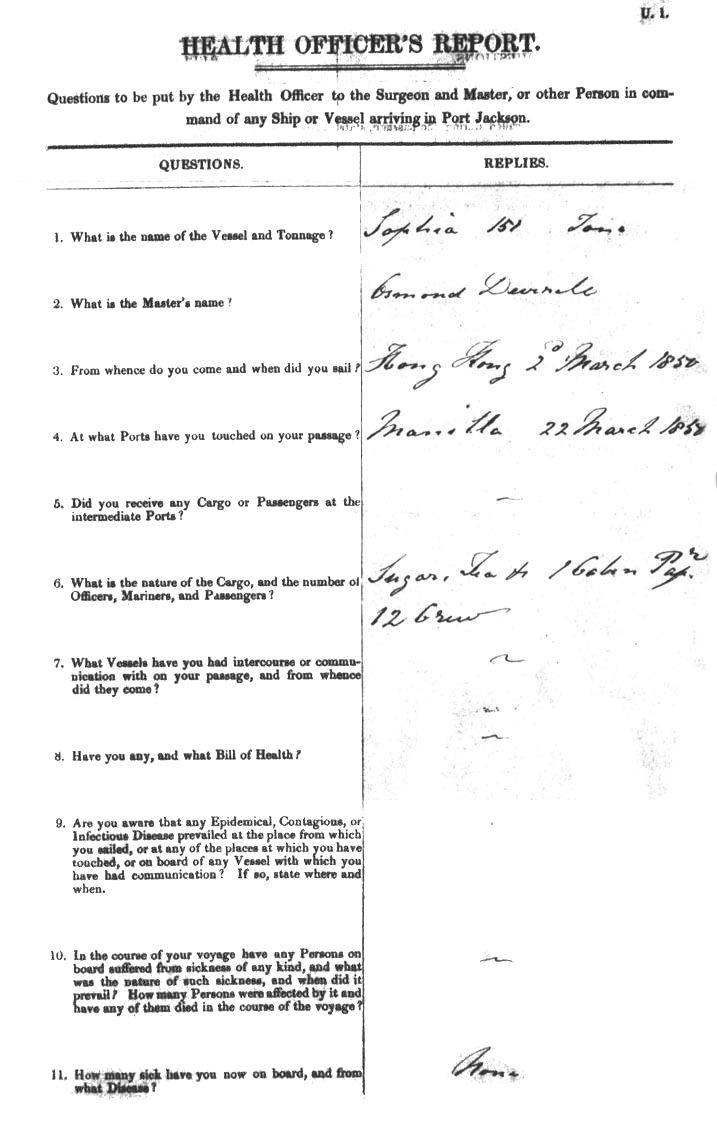 U. 1.
HEALTH OFFICER'S REPORT.
Questions to be put by the Health Officer to the Surgeon and Master, or other Person in com-
mand of any Ship or Vessel arriving in Port Jackson.
QUESTIONS.
REPLIES.
1. What is the name of the Vessel and Tonnage?
Sophia 151 Tons
2. What is the Master's name?
Osmond
3. From whence do you come and when did you sail?
Hong Kong 2d March 1850
4. At what Ports have you touched on your passage?
Manilla 22 March 1850
5. Did you receive any Cargo or Passengers at the
intermediate Ports?
—
6. What is the nature of the Cargo, and the number of
Officers, Mariners, and Passengers?
Sugar, Tea & 1 Cabin
12 Crew
7. What Vessels have you had intercourse or commu-
nication with on your passage, and from whence
did they come?
~
8. Have you any, and what Bill of Health?
~
9. Are you aware that any Epidemical, Contagious, or
Infectious Disease prevailed at the place from which
you sailed, or at any of the places at which you have
touched, or on board of any Vessel with which you
have had communication? If so, state where and
when.
10. In the course of your voyage have any Persons on
board suffered from sickness of any kind, and what
was the nature of such sickness, and when did it
prevail? How many Persons were affected by it and
have any of them died in the course of the voyage?
~
11. How many sick have you now on board, and from
what Disease?
None